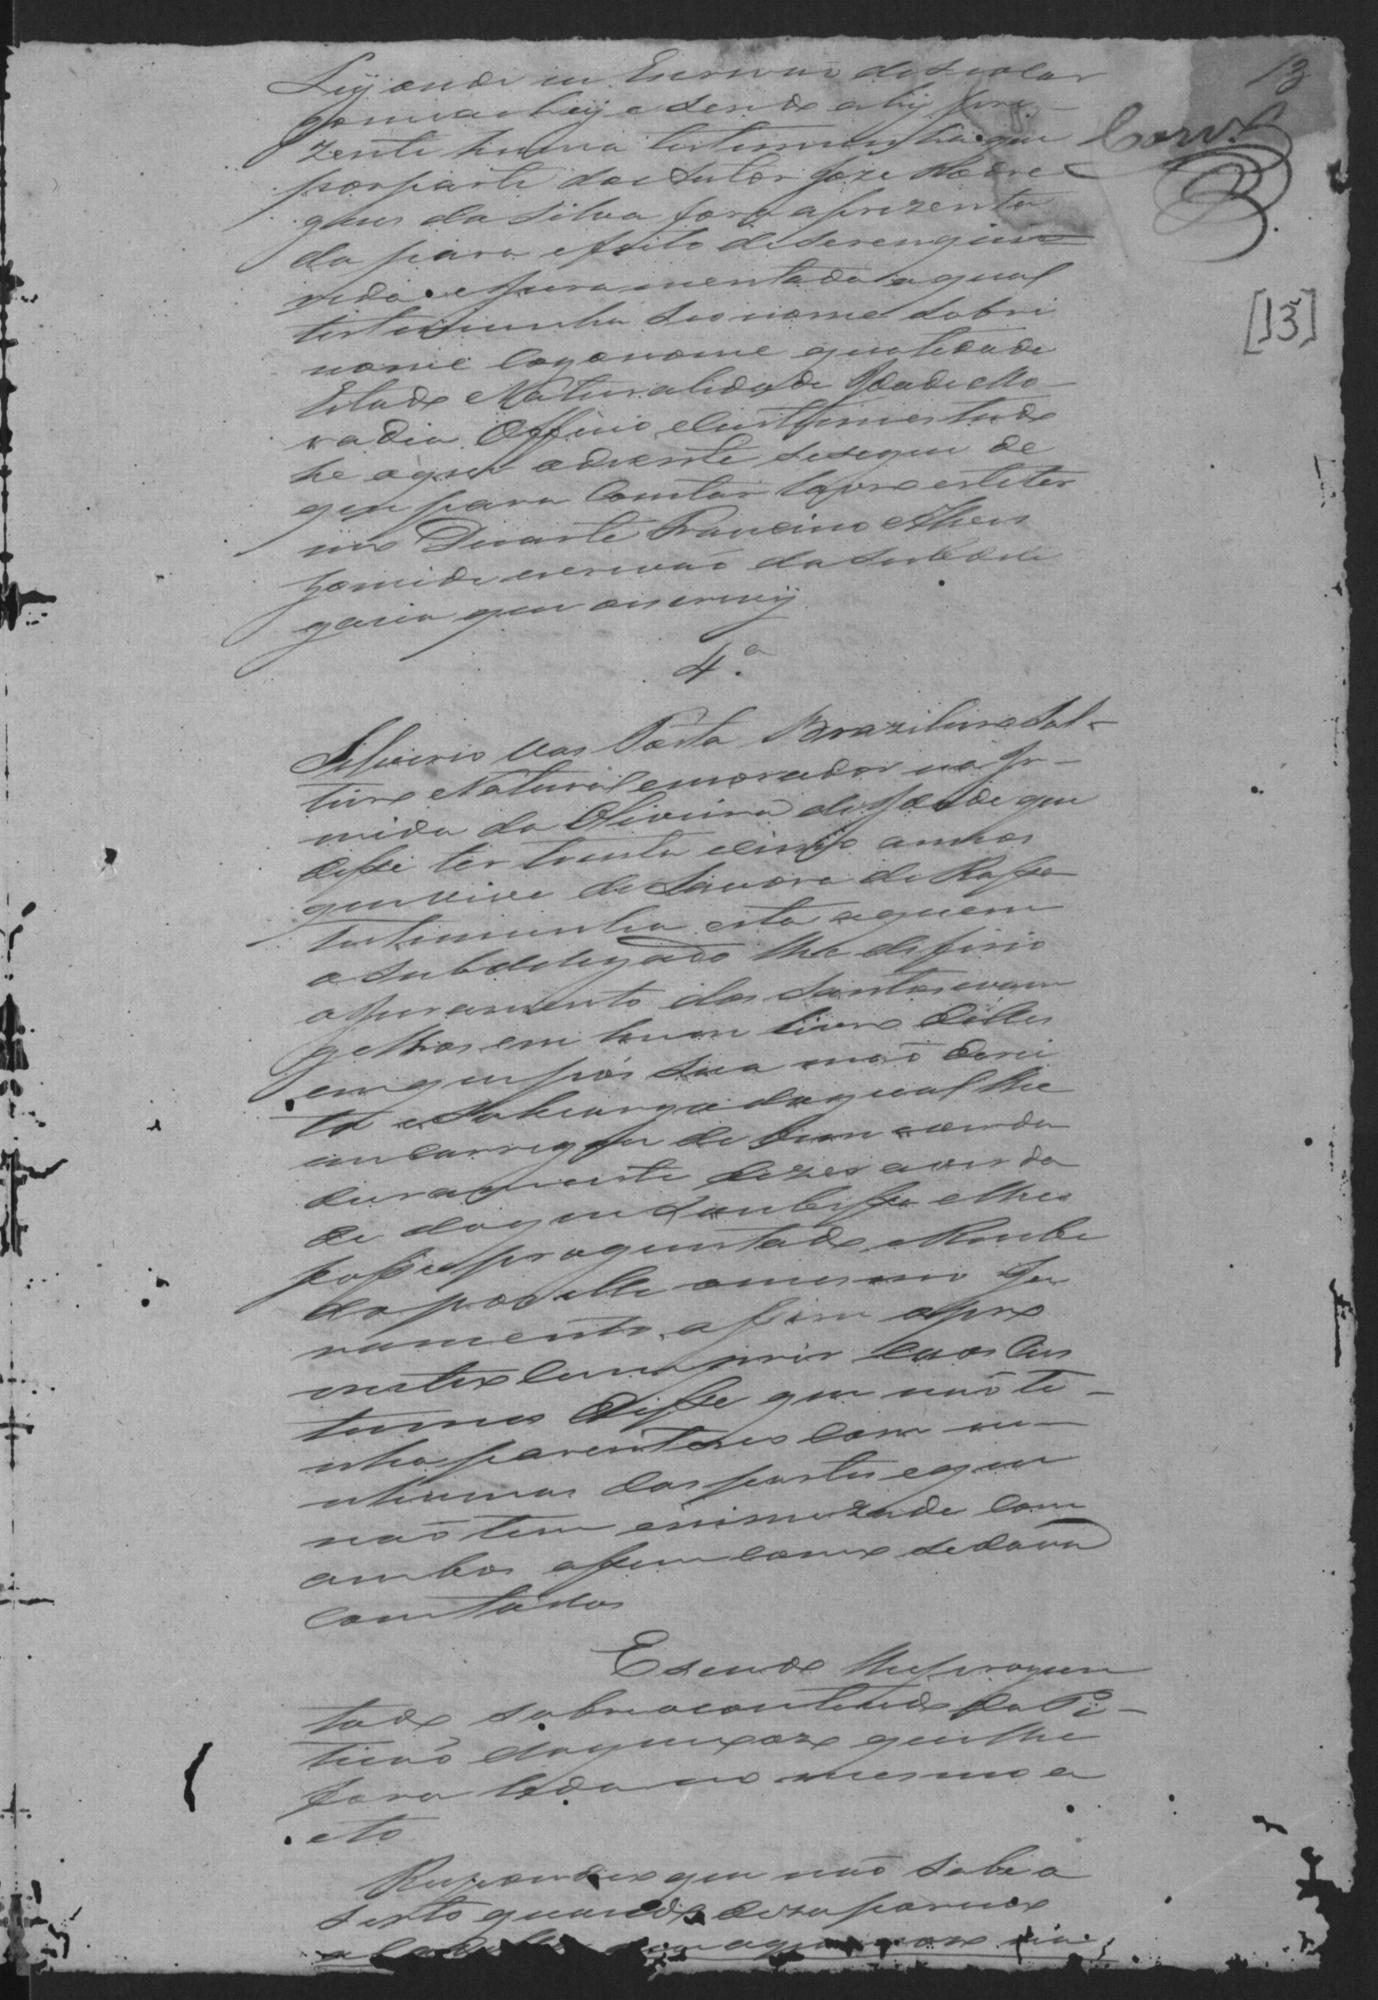 13
Carv.º
[13]
Sẽy onde eu Escrivão do seo car
go me achey e sendo ahy pre-
zente huma testemunha que
por parte do Autor Joze Rodre
gues da Silva fora aprezenta
da para efeito de ser enquiri
rida e juramentada a qual
testemunha seo nome sobri
nome cognome qualidade
Estado Naturalidade Idade Mo-
radia Officio e Custumes tudo
he o que adiente se segue de
que para Constar faço este ter
mo Duarte Francino Alves
escrivão da Subdele
gacia que o escrevy
4.ª
Silverio Vas Porta Brazileiro Sol-
teiro Natural e morador na Er-
mida da Oliveira de Idade que
disse ter trinta e cinco annos
que vive de Lavora de Rossa
testemunha esta a quem
o Subdelegado lhe difirio
o juramento dos Santos evan
gelhos em hum livro delles
em que pôs sua mão direi
ta e Sobcargo do qual lhe
encarregou de bem e verda
deiramente dizer a verda
de do que Soubesse e lhe
fosse proguntado e Recebi
do por elle o mesmo ju
ramento assim o pro
meteo cumprir e aos Cus
tumes Disse que não ti-
nha parentesco com ne-
nhumas das partes e que
não tem enimizade com
ambos assim como se dava
com todos
E sendo lhe progun
tado sobre o conteudo da Pi-
tição do queixozo que lhe
fora lida no mesmo a
cto
Respondeo que não sabe o
serto quando dezapareceo